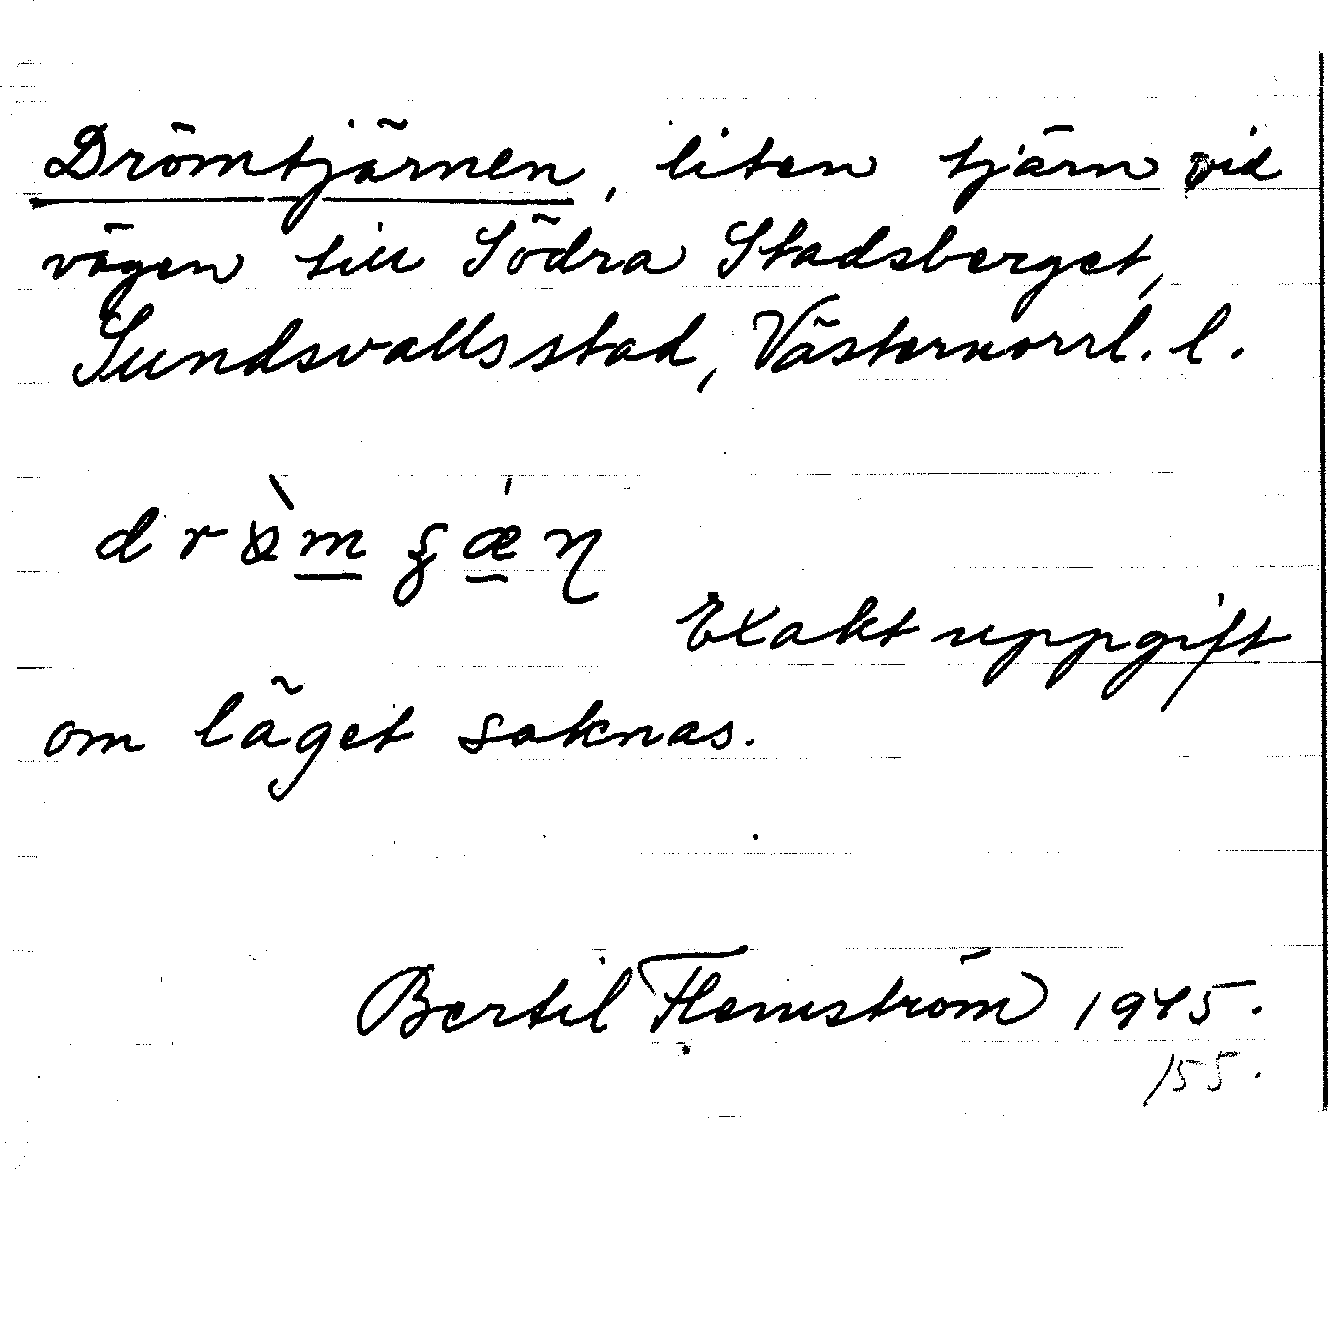 Drömtjärnen, liten tjärn vid
vägen till Södra Stadsberget,
Sundsvalls stad, Västernorrl. l.
Exakt uppgift
om läget saknas.
Bertil Flemström 1945.
155.